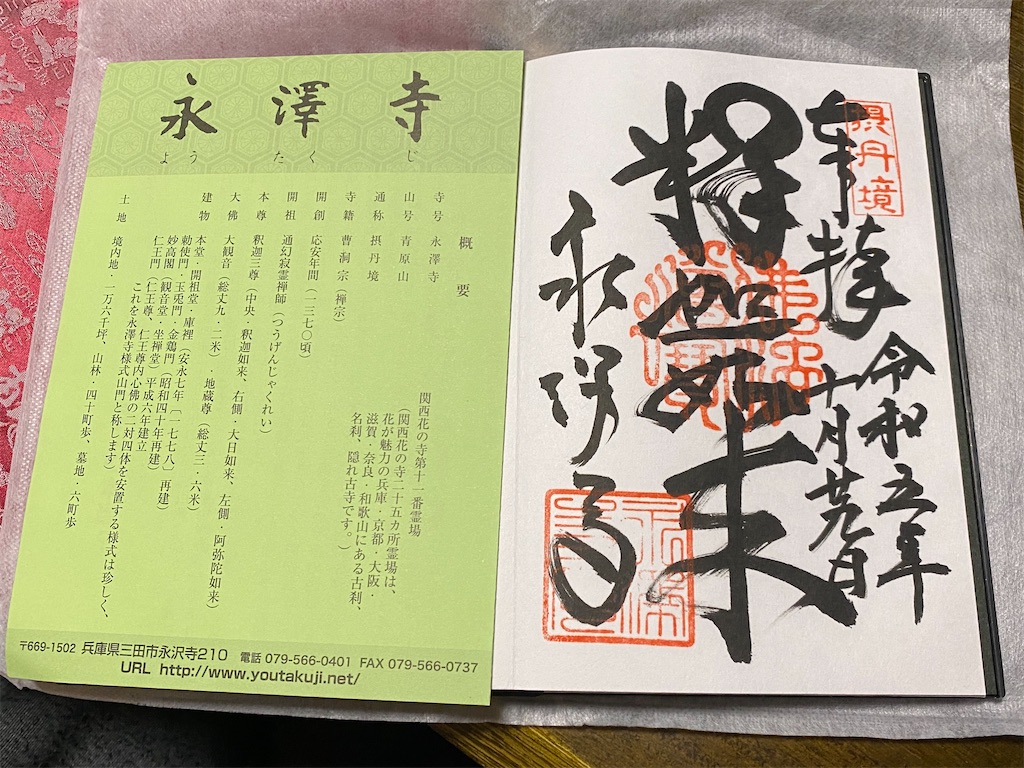 永澤寺
ようたくじ
概要
寺号 永澤寺
山号 青原山
通称 摂丹境
寺籍 曹洞宗(禅宗)
開創 応安年間(一三七〇頃)
開祖 通幻寂霊禅師(つうげんじゃくれい)
本尊 釈迦三尊(中央・釈迦如来、右側・大日如来、左側・阿弥陀如来)
大佛 大観音(総丈九・二米)・地蔵尊(総丈三・六米)
建物 本堂・開祖堂・庫裡(安永七年〔一七七八〕再建)
勅使門・玉兎門・金鶏門(昭和四十年再建)
妙高閣・観音堂・坐禅堂(平成六年建立)
仁王門(仁王尊、仁王尊内心佛の二対四体を安置する様式は珍しく、
これを永澤寺様式山門と称します)
土地 境内地・一万六千坪、山林・四十町歩、墓地・六町歩
関西花の寺第十一番霊場
(関西花の寺二十五カ所霊場は、
花が魅力の兵庫・京都・大阪・
滋賀・奈良・和歌山にある古刹、
名刹、隠れ古寺です。)
〒669-1502 兵庫県三田市永沢寺210 電話 079-566-0401 FAX 079-566-0737
URL http://www.youtakuji.net/
摂丹境
奉拝 令和五年
十月廿九日
釋迦如来
永澤寺